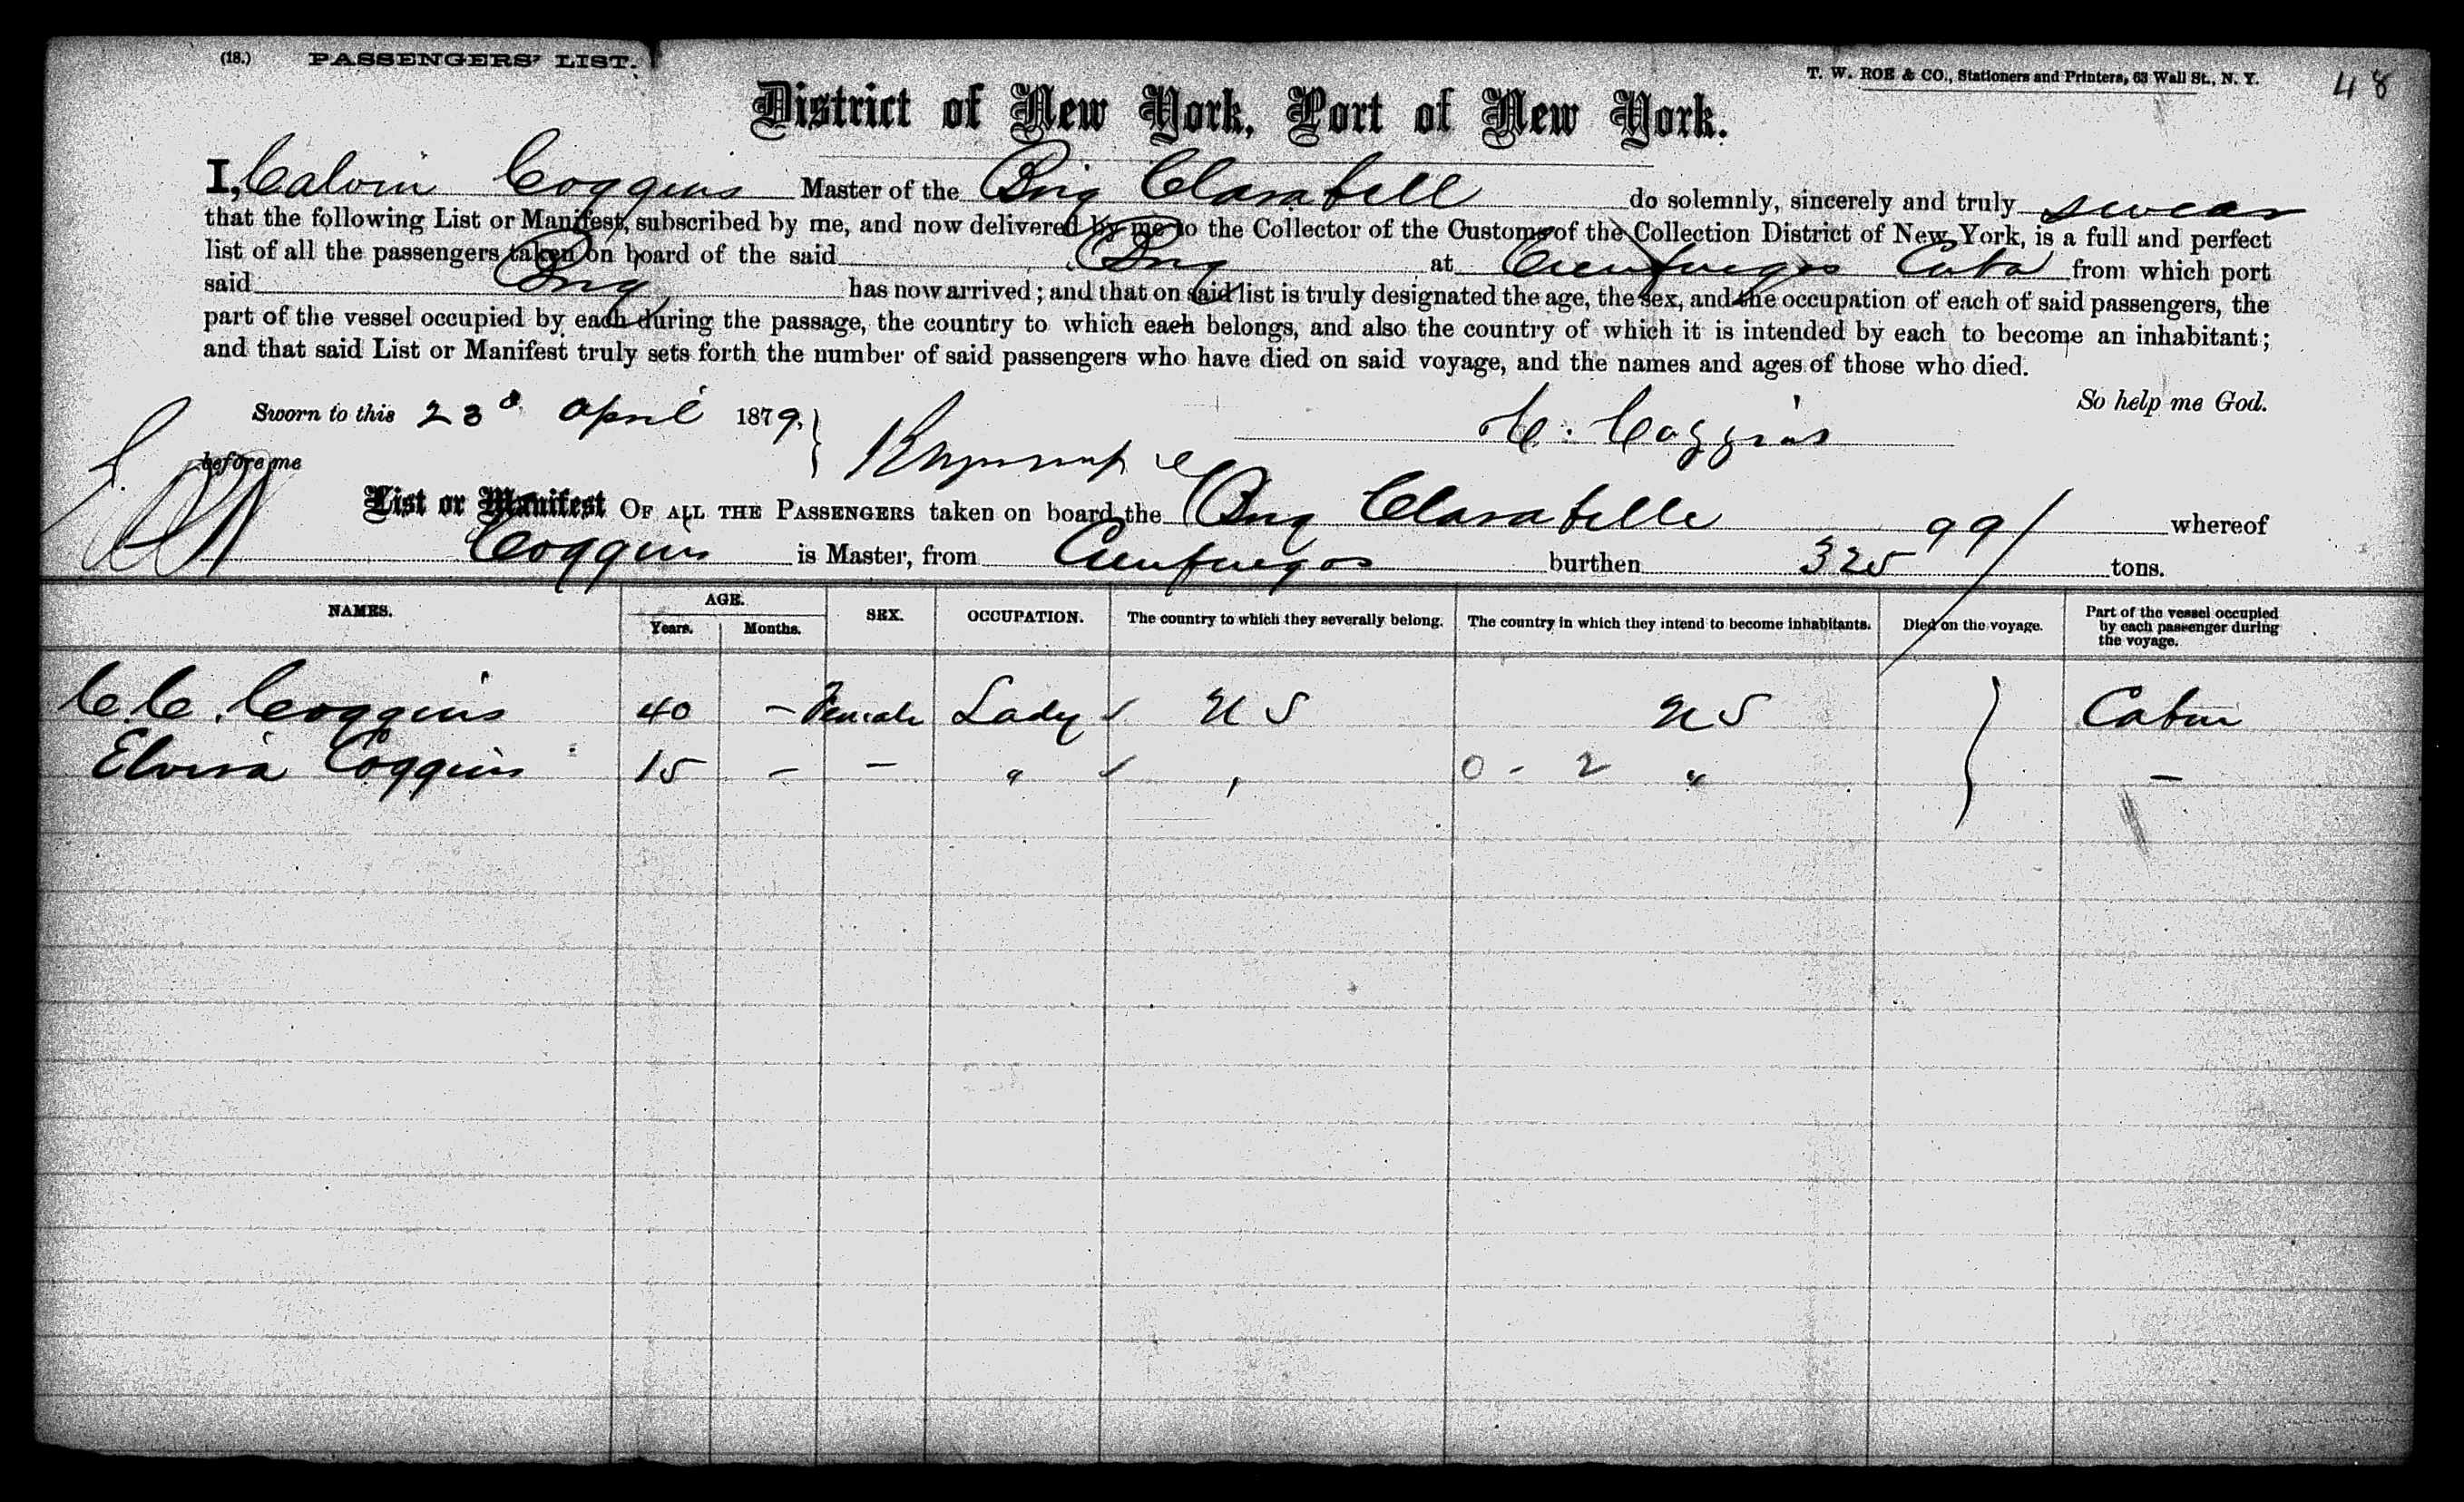 (18.) PASSENGERS' LIST. T. W. ROE & CO., Stationers and Printers, 63 Wall St., N. Y. 48
District of New York, Port of New York.
I, Calvin Coggins Master of the Brig Clarabell do solemnly, sincerely and truly swear
that the following List or Manifest, subscribed by me, and now delivered by me to the Collector of the Customs of the Collection District of New York, is a full and perfect
list of all the passengers taken on board of the said Brig at Cienfuegos Cuba from which port
said Brig has now arrived; and that on said list is truly designated the age, the sex, and the occupation of each of said passengers, the
part of the vessel occupied by each during the passage, the country to which each belongs, and also the country of which it is intended by each to become an inhabitant;
and that said List or Manifest truly sets forth the number of said passengers who have died on said voyage, and the names and ages of those who died.
So help me God.
Sworn to this 23d April 1879. C. Coggins
before me
List or Manifest OF ALL THE PASSENGERS taken on board the Brig Clarabelle 99/ whereof
Coggins is Master, from Cienfuegos burthen 325 tons.
NAMES. AGE. Years. Months. SEX. OCCUPATION. The country to which they severally belong. The country in which they intend to become inhabitants. Died on the voyage. Part of the vessel occupied by each passenger during the voyage.
C. C. Coggins 40 - Female Lady ✓ U S U S Cabin
Elvira Coggins 15 - - " ✓ " 0 - 2 " -